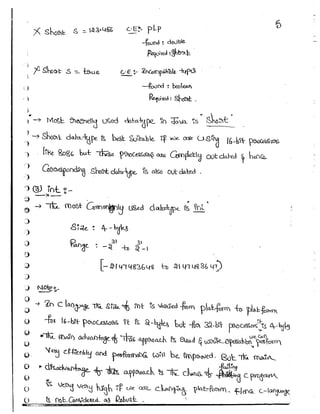 5
X Short S = 123.456 C.E:- PLP
found : double
Required : short
X Short S = true C.E :- Incompatible types
found : boolean
Required : Short.
→ Most rarely used datatype in Java is "Short"
→ Short data-type is best Suitable if we are using 16-bit processors
like 8086 but these processors are Completely out dated & hence
Corresponding Short datatype is also out dated.
(3) int :-
→ The most Commonly used datatype is int
Size : 4-bytes
Range : -2^31 to 2^31-1
[-2147483648 to 2147483647]
Notes:-
→ In C language The Size of int is varied from platform to platform
for 16-bit processors it is 2-bytes but for 32-bit processors it is 4-bytes
The main advantage of this approach is Read & write operation we can perform
very efficiently and performance will be improved. But The main
disadvantage of this approach is The chance of failing C program
is very very high if we are changing platform. Hence C-language
is not Considered as Robust.